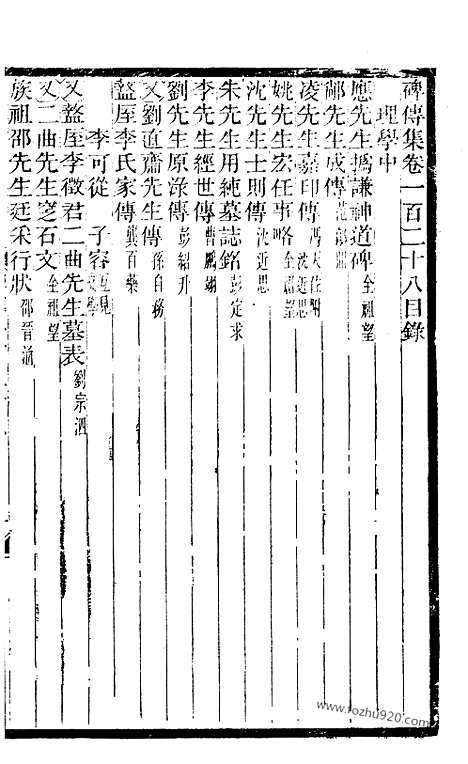 碑傳集卷一百二十八目錄
理學中
應先生撝謙神道碑 全祖望
鄘先生成傳 范鄗鼎
凌先生嘉印傳 馮天佐附 沈近思
姚先生宏任事略 全祖望
沈先生士則傳 沈近思
朱先生用純墓誌銘 彭定求
李先生經世傳 曹鵬翊
劉先生原淥傳 彭紹升
又劉直齋先生傳 孫自務
盩厔李氏家傳 龔百藥
李可從 子容 互見文學
又盩厔李徵君二曲先生墓表 劉宗泗
又二曲先生窆石文 全祖望
族祖邵先生廷采行狀 邵晉涵
www.fozhu920.com